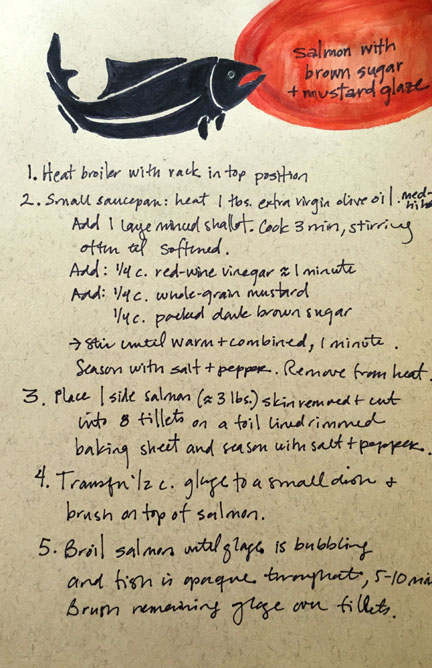 salmon with
brown sugar
+ mustard glaze
1. Heat broiler with rack in top position
2. Small saucepan: heat 1 tbs. extra virgin olive oil. med-hi
Add 1 large minced shallot. Cook 3 min, stirring
often til softened.
Add: 1/4 c. red-wine vinegar ≈ 1 minute
Add: 1/4 c. whole-grain mustard
1/4 c. packed dark brown sugar
→ Stir until warm + combined, 1 minute.
Season with salt + pepper. Remove from heat.
3. Place 1 side salmon (≈ 3 lbs.) skin removed + cut
into 8 fillets on a foil lined rimmed
baking sheet and season with salt + pepper.
4. Transfer 1/2 c. glaze to a small dish +
brush on top of salmon.
5. Broil salmon until glaze is bubbling
and fish is opaque throughout, 5-10 min
Brush remaining glaze over fillets.